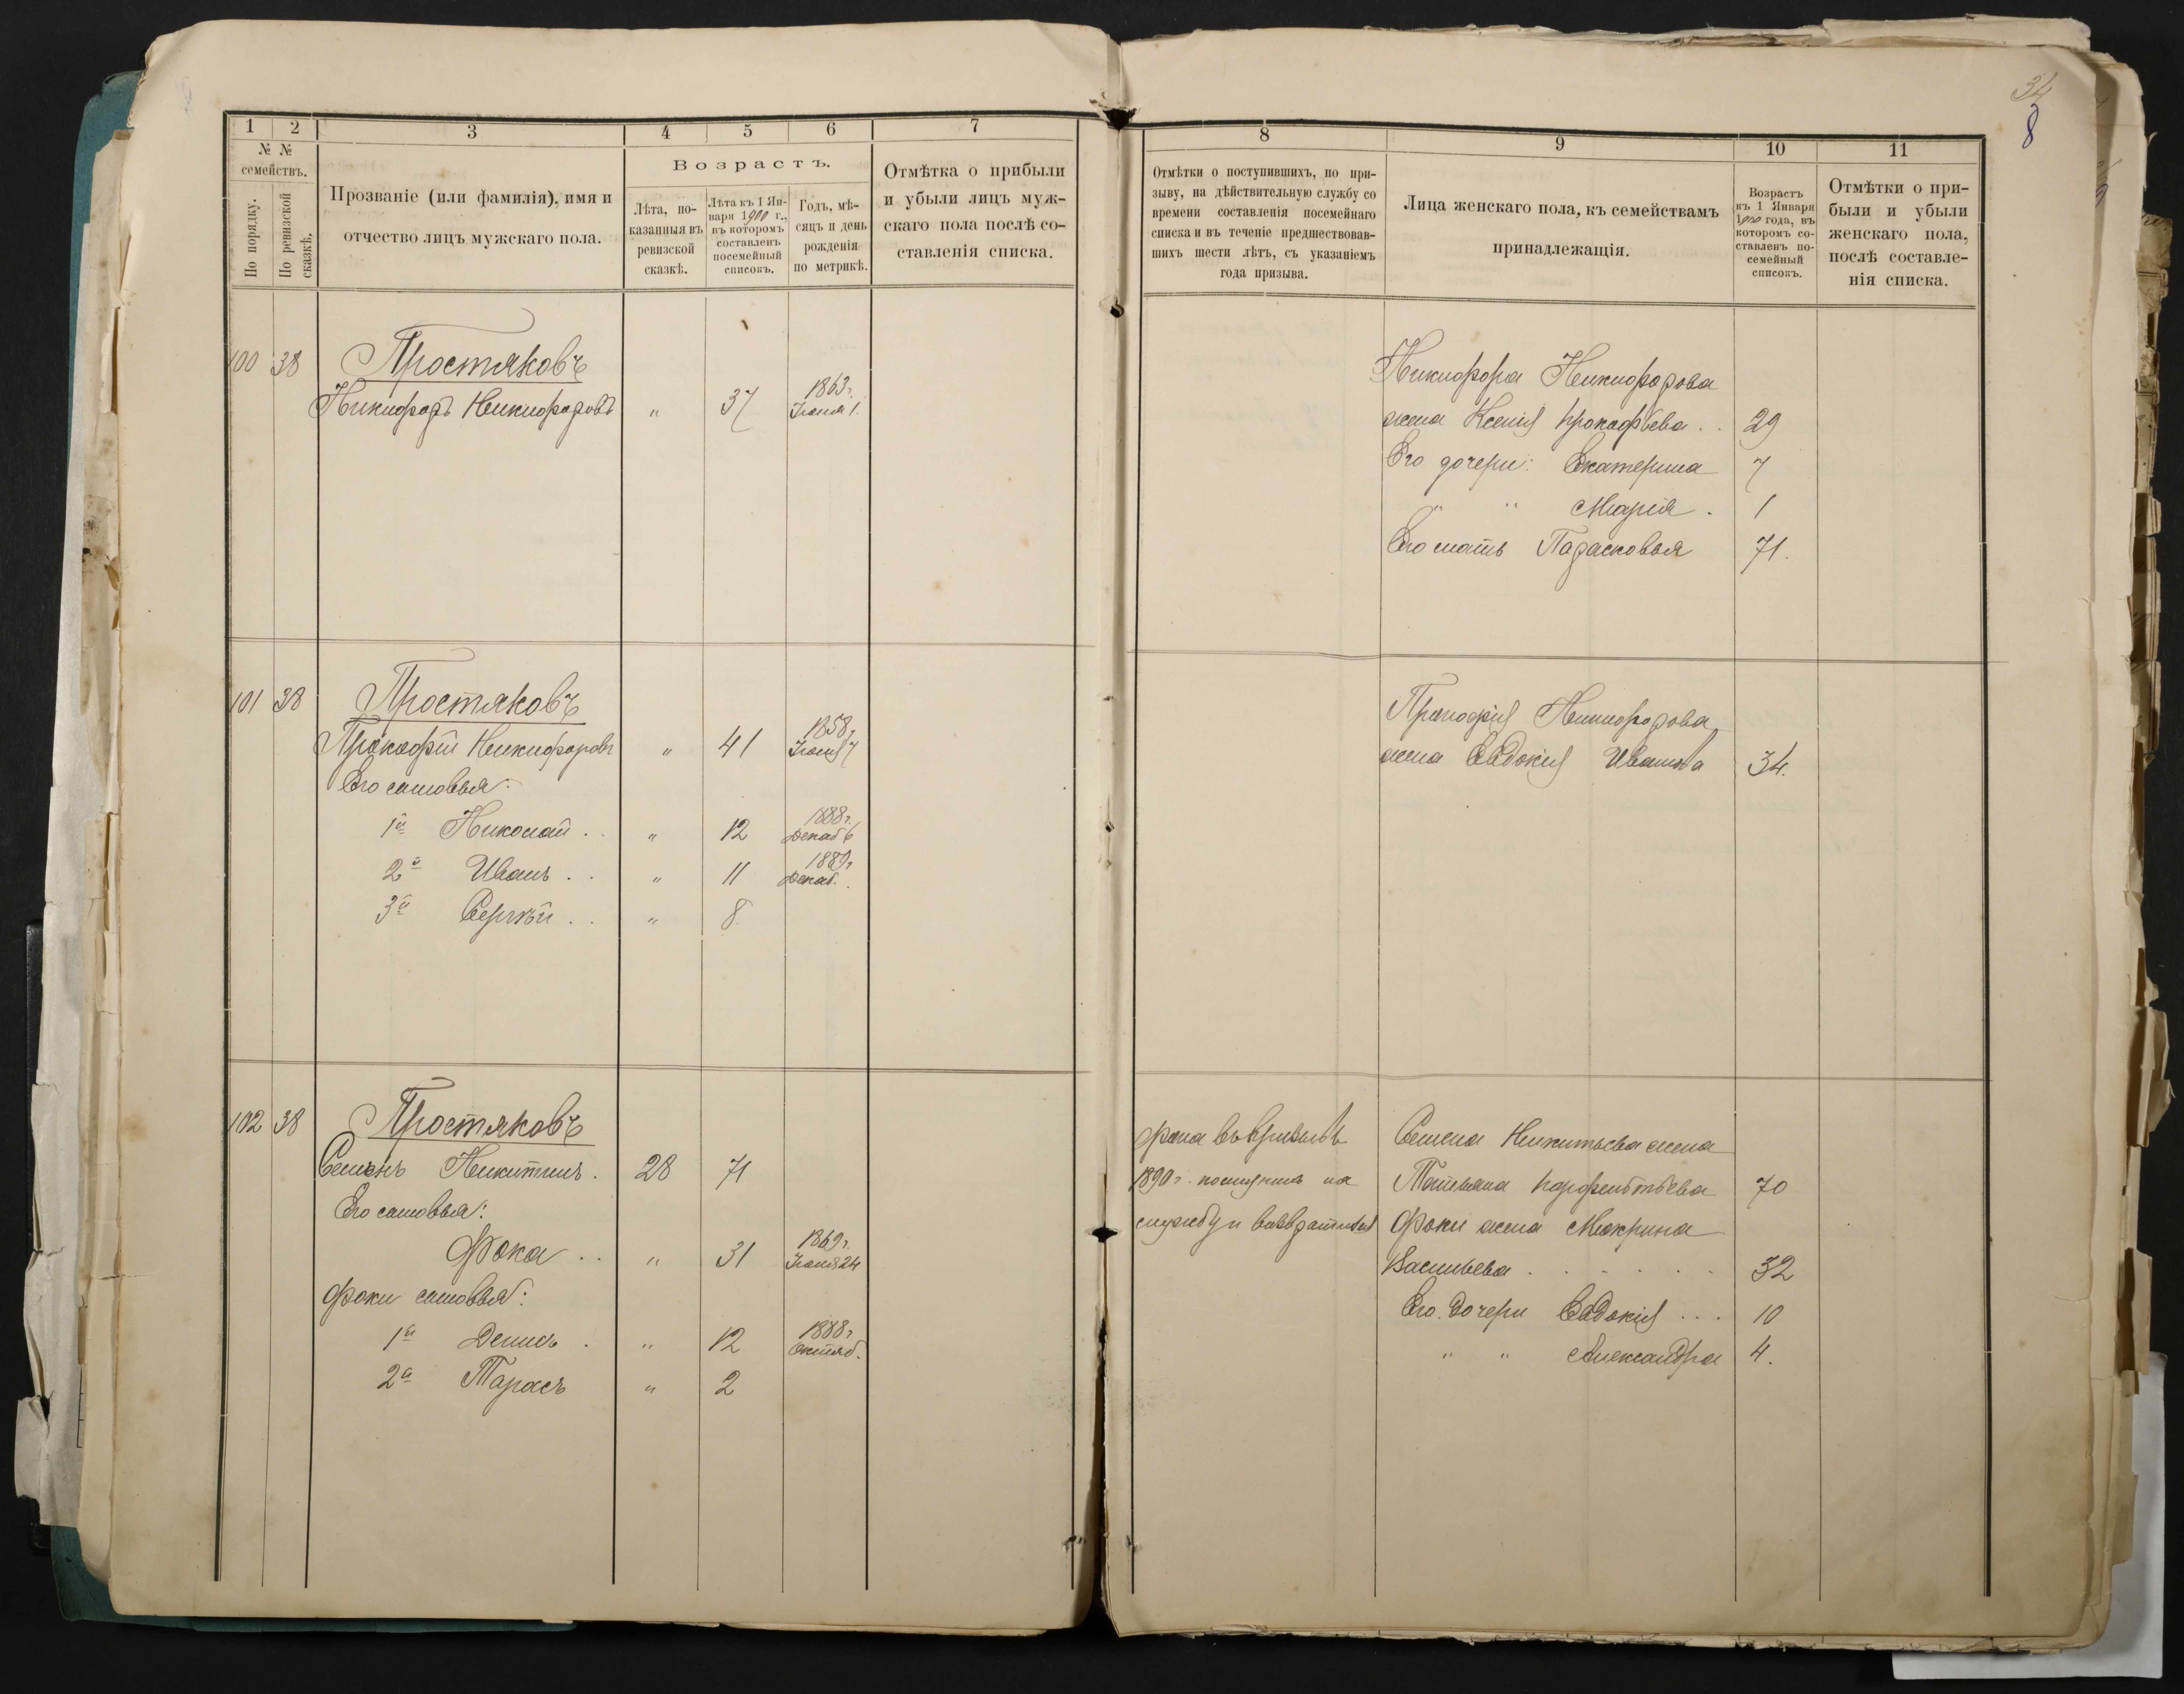 1 2 3 4 5 6 7
№ №
семействъ.
По порядку.
По ревизской
сказкѣ.
Прозваніе (или фамилія), имя и
отчество лицъ мужскаго пола.
Возрастъ.
Лѣта, по-
казанныя въ
ревизской
сказкѣ.
Лѣта къ 1 Ян-
варя 1900 г.,
въ которомъ
составленъ
посемейный
списокъ.
Годъ, мѣ-
сяцъ и день
рожденія
по метрикѣ.
Отмѣтка о прибыли
и убыли лицъ муж-
скаго пола послѣ со-
ставленія списка.
100 38 Простяковъ
Никифоръ Никифоровъ " 37 1863 г.
Іюня 1.
101 38 Простяковъ
Прокофій Никифоровъ " 41 1858 г.
Іюля 7
Его сыновья:
1й Николай . . " 12 1888 г.
Декаб 6
2й Иванъ . . " 11 1889 г.
Декаб.
3й Сергѣй . . " 8
102 38 Простяковъ
Семенъ Никитинъ . 28 71
Его сыновья:
Фока . . " 31 1869 г.
24
Фоки сыновья:
1й Денисъ . " 12 1888 г
Октяб.
2й Тарасъ " 2
34
8
8 9 10 11
Отмѣтки о поступившихъ, по при-
зыву, на дѣйствительную службу со
времени составленія посемейнаго
списка и въ теченіе предшествовав-
шихъ шести лѣтъ, съ указаніемъ
года призыва.
Лица женскаго пола, къ семействамъ
принадлежащія.
Возрастъ
къ 1 Января
1900 года, въ
которомъ со-
ставленъ по-
семейный
списокъ.
Отмѣтки о при-
были и убыли
женскаго пола,
послѣ составле-
нія списка.
Никифора Никифорова
жена Ксенія Прокофьева . . 29
Его дочери: Екатерина 7
" " Марія . 1
Его мать Парасковья 71.
Прокофія Никифорова
жена Евдокія Иванова 34.
Фока въ призывъ
1890 г. поступилъ на
службу и возвратился
Семена Никитьева жена
Татьяна Парфентьева 70
Фоки жена Макрина
Васильева . . . . . . 32
Его дочери Евдокія . . . 10
" " Александра 4.